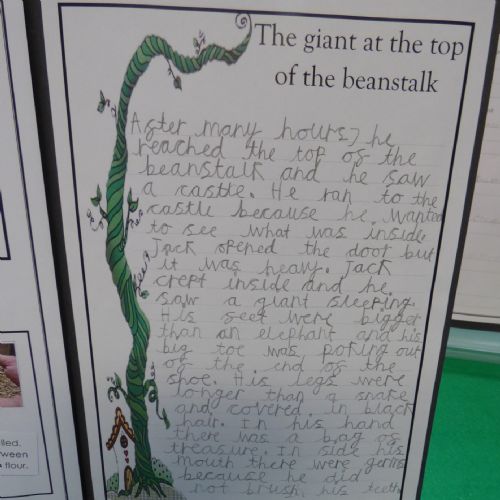 The giant at the top
of the beanstalk
After many hours, he
reached the top of the
beanstalk and he saw
a castle. He ran to the
castle because he wanted
to see what was inside.
Jack opened the door but
it was heavy. Jack
crept inside and he
saw a giant sleeping.
His feet were bigger
than an elephant and his
big toe was poking out
of the end of the
shoe. His legs were
longer than a snake
and covered in black
hair. In his hand
there was a bag of
treasure. In side his
mouth there were germs
because he did
not brush his teeth
lled.
ween
flour.